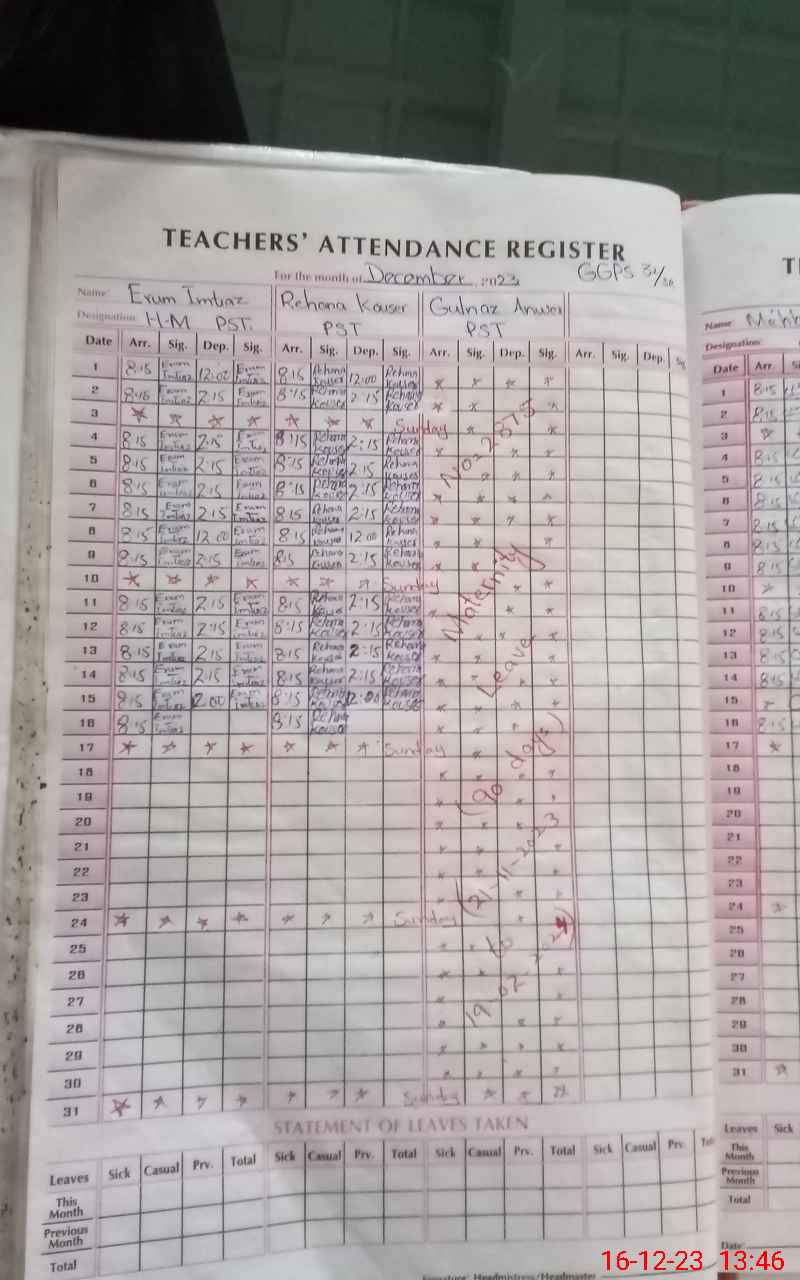 TEACHERS' ATTENDANCE REGISTER
For the month of December, 2023 GGPS 32/
Name: Erum Imtiaz Rehana Kouser Gulnaz Anwer
Designation: H-M PST. PST PST
Date Arr. Sig. Dep. Sig. Arr. Sig. Dep. Sig. Arr. Sig. Dep. Sig. Arr. Sig. Dep.
1 8:15 Erum Imtiaz 12:00 Erum Imtiaz 8:15 Rehana Kouser 12:00 Rehana Kouser * * * *
2 8:15 Erum Imtiaz 2:15 Erum Imtiaz 8:15 Rehana Kouser 2:15 Rehana Kouser * * *
3 * * * * * * * Sunday * *
4 8:15 Erum Imtiaz 2:15 Erum Imtiaz 8:15 Rehana Kouser 2:15 Rehana Kouser * * *
5 8:15 Erum Imtiaz 2:15 Erum Imtiaz 8:15 Rehana Kouser 2:15 Rehana Kouser * * * *
6 8:15 Erum Imtiaz 2:15 Erum Imtiaz 8:15 Rehana Kouser 2:15 Rehana Kouser * * * *
7 8:15 Erum Imtiaz 2:15 Erum Imtiaz 8:15 Rehana Kouser 2:15 Rehana Kouser * * * *
8 8:15 Erum Imtiaz 12:00 Erum Imtiaz 8:15 Rehana Kouser 12:00 Rehana Kouser * * *
9 8:15 Erum Imtiaz 2:15 Erum Imtiaz 8:15 Rehana Kouser 2:15 Rehana Kouser * * *
10 * * * * * * * Sunday * *
11 8:15 Erum Imtiaz 2:15 Erum Imtiaz 8:15 Rehana Kouser 2:15 Rehana Kouser * * *
12 8:15 Erum Imtiaz 2:15 Erum Imtiaz 8:15 Rehana Kouser 2:15 Rehana Kouser * * * *
13 8:15 Erum Imtiaz 2:15 Erum Imtiaz 8:15 Rehana Kouser 2:15 Rehana Kouser * * *
14 8:15 Erum Imtiaz 2:15 Erum Imtiaz 8:15 Rehana Kouser 2:15 Rehana Kouser * * * *
15 8:15 Erum Imtiaz 2:00 Erum Imtiaz 8:15 Rehana Kouser 12:00 Rehana Kouser * * *
16 8:15 Erum Imtiaz 8:15 Rehana Kouser * * *
17 * * * * * * * Sunday *
18
19
20
21
22
23
24 * * * * * * * Sunday *
25
26
27
28
29
30
31 * * * * * * * Sunday * * *
No= 2875
Maternity
Leave
(90 days)
(21-11-2023
to
19-02-2024)
STATEMENT OF LEAVES TAKEN
Leaves Sick Casual Prv. Total Sick Casual Prv. Total Sick Casual Prv. Total Sick Casual Prv.
This Month
Previous Month
Total
Signature: Headmistress/Headmaster
Name:
Designation:
Date Arr
1 8:15
2 8:15
3 *
4 8:15
5 8:15
6 8:15
7 8:15
8 8:15
9 8:15
10 *
11 8:15
12 8:15
13 8:15
14 8:15
15
16 8:15
17 *
18
19
20
21
22
23
24 *
25
26
27
28
29
30
31 *
Leaves Sick
This Month
Previous Month
Total
Date:
16-12-23 13:46